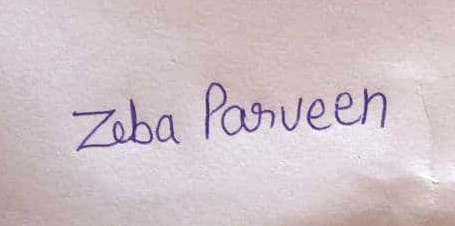 Zeba Parveen